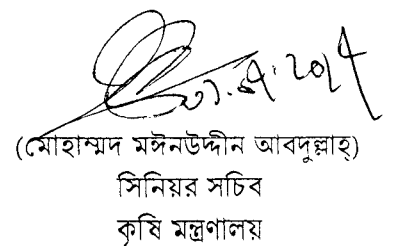 (মোহাম্মদ মঈনউদ্দীন আবদুল্লাহ্)
সিনিয়র সচিব
কৃষি মন্ত্রণালয়